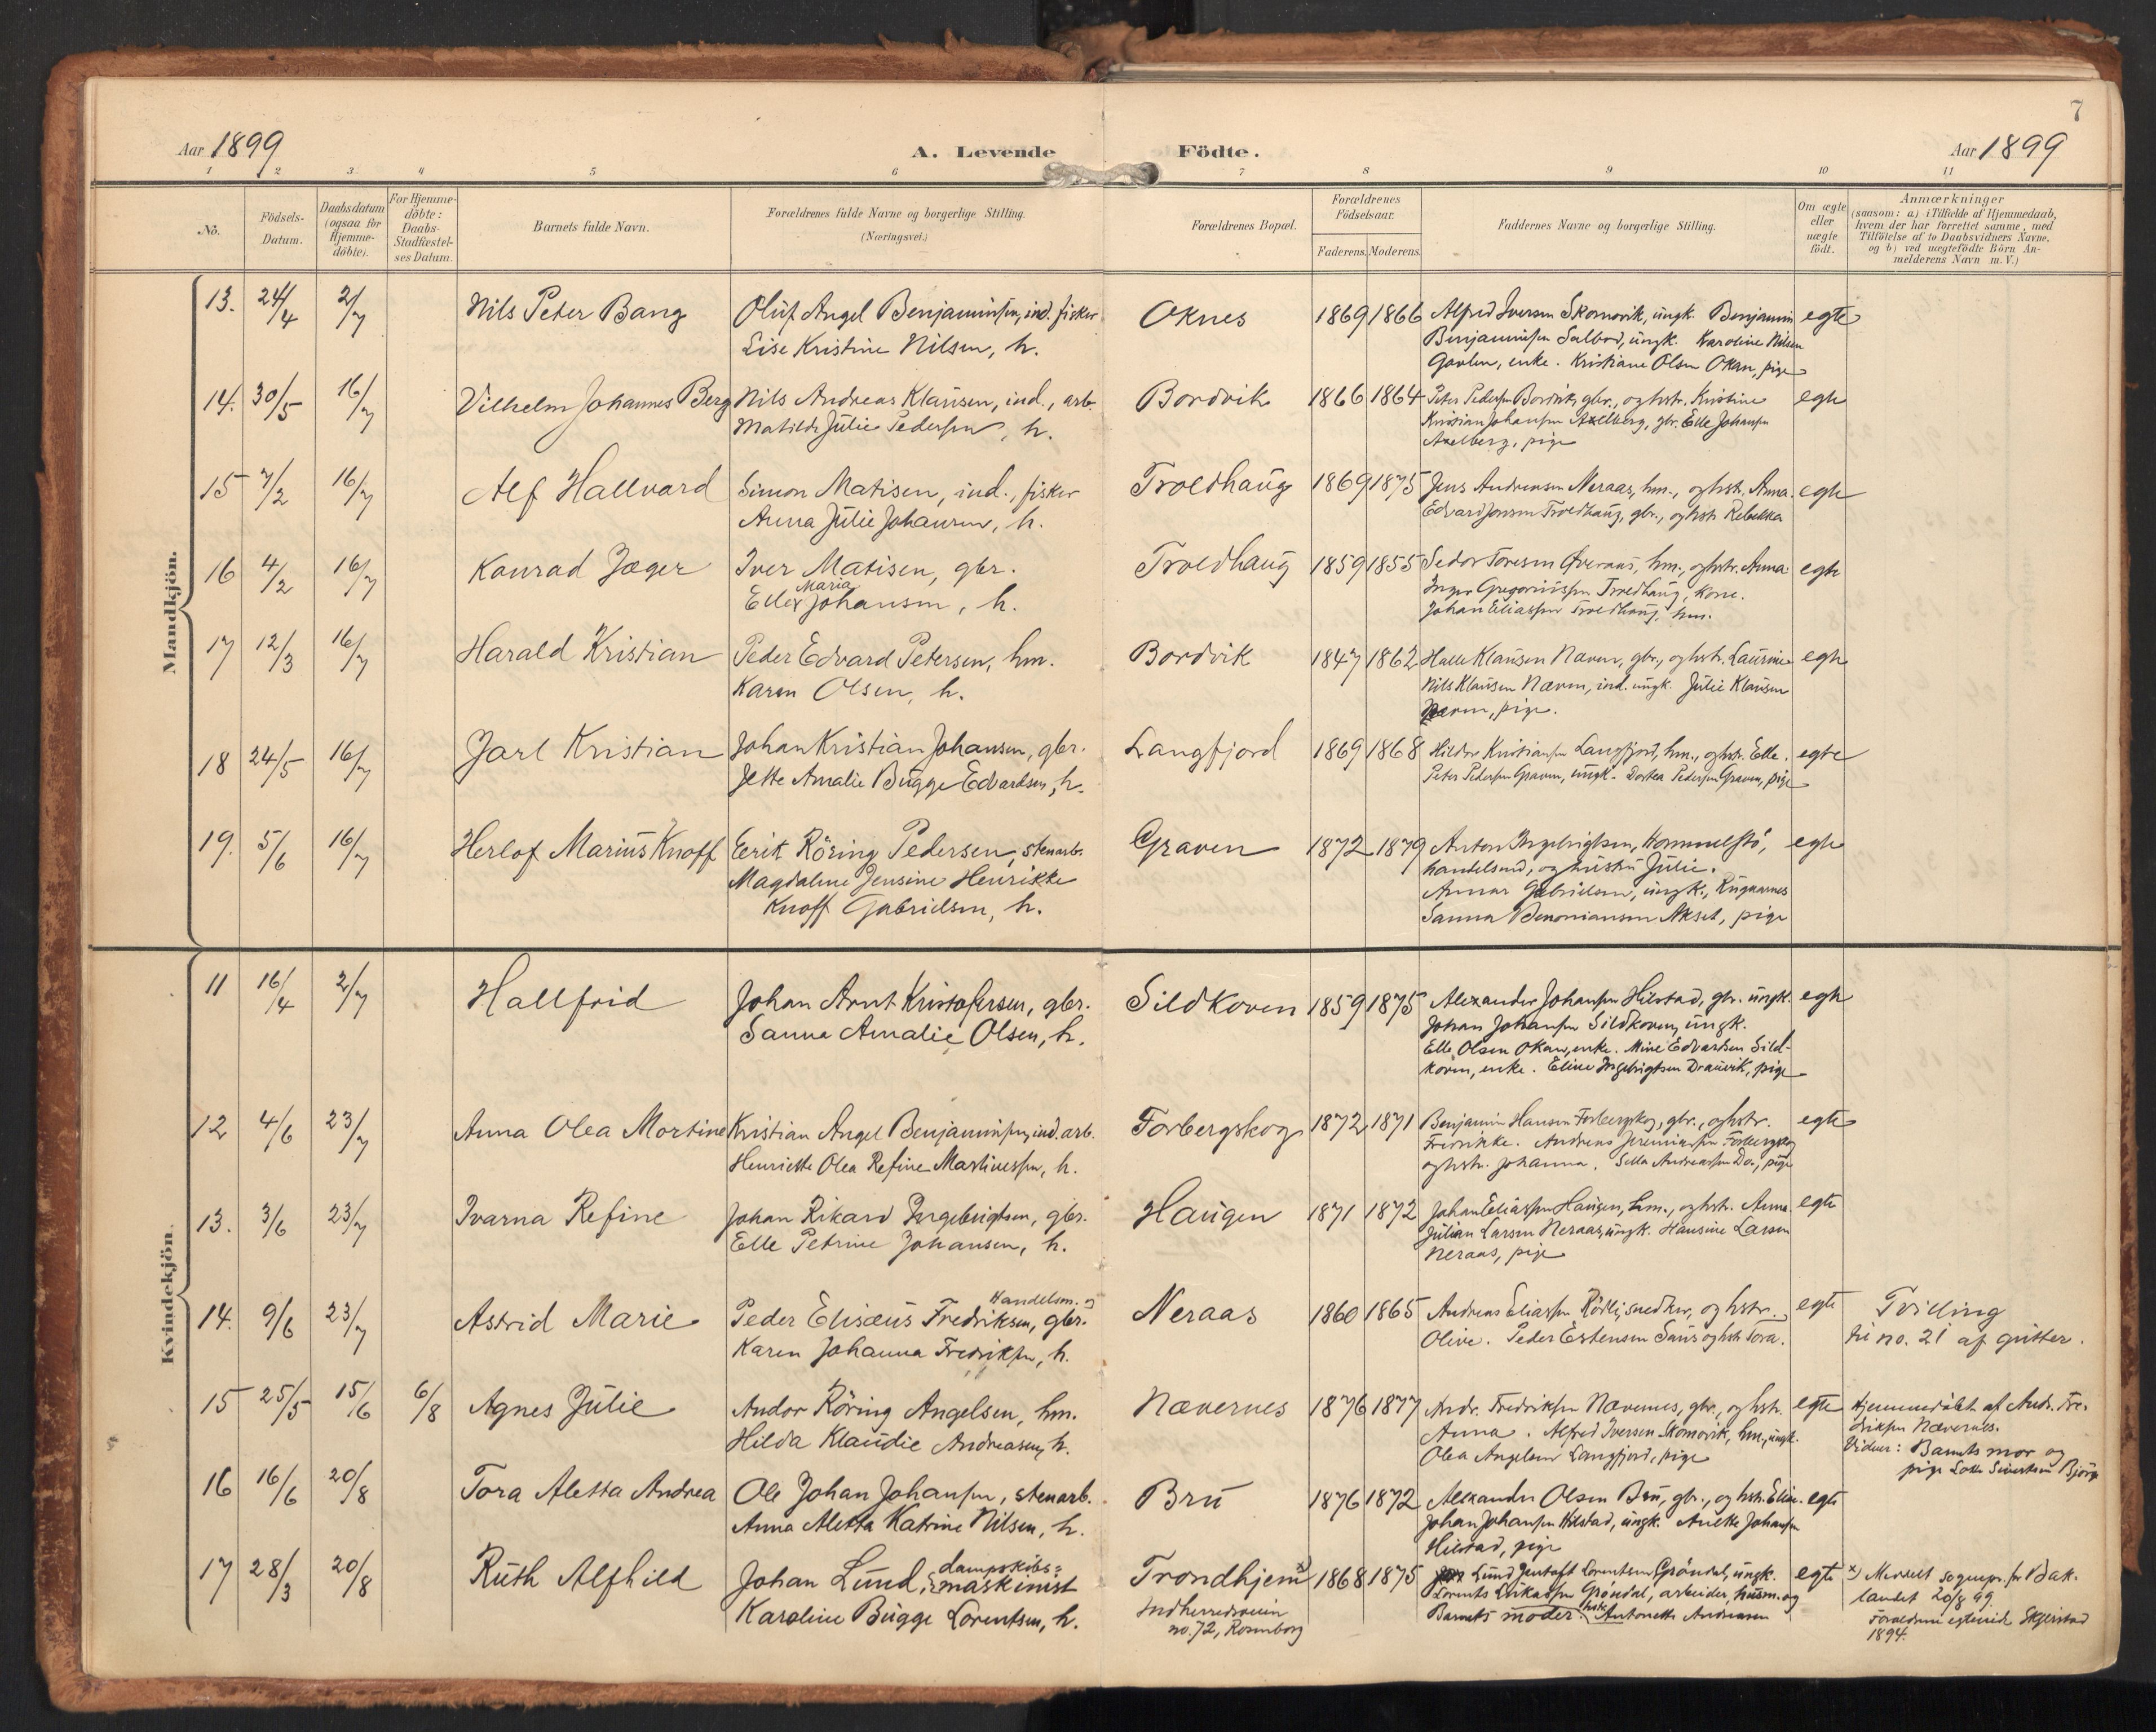 7
Aar 1899
A. Levende Födte.
Aar 1899
1 2 3 4 5 6 7 8 9 10 11
No.
Födsels-
Datum.
Daabsdatum
(ogsaa for
Hjemme-
döbte).
For Hjemme-
döbte:
Daabs-
Stadfæstel-
ses Datum.
Barnets fulde Navn.
Forældrenes fulde Navne og borgerlige Stilling.
(Næringsvei.)
Forældrenes Bopæl.
Forældrenes
Födselsaar.
Faderens. Moderens.
Faddernes Navne og borgerlige Stilling.
Om ægte
eller
uægte
födt.
Anmærkninger
(saasom: a) i Tilfælde af Hjemmedaab,
hvem der har forrettet samme, med
Tilföielse af to Daabsvidners Navne,
og b) ved uægtefödte Börn An-
melderens Navn m. V.)
Mandkjön.
13. 24/4 2/7 Nils Peter Bang
Oluf Angel Benjaminsen, ind. fisker
Lise Kristine Nilsen, h.
Oknes 1869 1866
Alfred Iversen Skomovik, ungk. Benjamin
Benjaminsen Salbod, ungk. Karoline Nilsen
enke. Kristiane Olsen Okan, pige
egte
14. 30/5 16/7 Vilhelm Johannes Berg
Nils Andreas Klausen, ind., arb.
Matilde Julie Pedersen, h.
Bordvik 1866 1864
Peter Pedersen Bordvik, gbr., og hstr. Kristine
Kristian Johansen Axelberg, gbr. Elle Johansen
Axelberg, pige
egte
15 7/2 16/7 Alf Hallvard
Simon Matisen, ind., fisker
Anna Julie Johansen, h.
Troldhaug 1869 1875
Jens Andreasen Neraas, hm., og hstr. Anna.
Edvard Jensen Troldhaug, gbr., og hstr. Rebekka
egte
16 4/2 16/7 Konrad Jæger
Iver Matisen, gbr.
Maria
Elle x Johansen, h.
Troldhaug 1859 1855
Sedor Toresen Øveraas, hm., og hstr. Anna
Inger Gregoriussen Troldhaug, kone.
Johan Eliassen Troldhaug, hm.
egte
17 12/3 16/7 Harald Kristian
Peder Edvard Petersen, hm.
Karen Olsen, h.
Bordvik 1847 1862
Halle Klausen Næven, gbr., og hstr. Laurine
Nils Klausen Næven, ind. ungk. Julie Klausen
Næven, pige.
egte
18 24/5 16/7 Jarl Kristian
Johan Kristian Johansen, gbr.
Jette Amalie Bugge Edvardsen, h.
Langfjord 1869 1868
Hildor Kristiansen Langfjord, hm., og hstr. Elle.
Peter Pedersen Graven, ungk. Dortea Pedersen Graven, pige
egte
19. 5/6 16/7 Herlof Marius Knoff
Eerik Röring Pedersen, stenarb.
Magdalene Jensine Henrikke
Knoff Gabrielsen, h.
Graven 1872 1879
Anton Ingebrigtsen, Hommelstö,
handelsmd, og hustru Julie.
Annar Gabrielsen, ungk.,
Sanna Benoniansen Akset, pige
egte
Kvindekjön.
11 16/4 2/7 Hallfrid
Johan Arnt Kristofersen, gbr.
Sanna Amalie Olsen, h.
Sildkoven 1859 1875
Alexander Johansen Hilstad, gbr. ungk.
Johan Johansen Sildkoven, ungk.
Elle Olsen Okan, enke. Mine Edvardsen Sild-
koven, enke. Eline Ingebrigtsen Drauvik, pige
egte
12 4/6 23/7 Anna Olea Mortine
Kristian Angel Benjaminsen, ind. arb.
Henriette Olea Refine Martinessen, h.
Forbergskog 1872 1871
Benjamin Hansen Forbergskog, gbr., og hstr.
Fredrikke. Andreas Jeremiassen Forbergskog
og hstr. Johanna. Sella Andreassen Do., pige
egte
13. 3/6 23/7 Ivarna Refine
Johan Rikard Ingebrigtsen, gbr.
Elle Petrine Johansen, h.
Haugen 1871 1872
Johan Eliassen Haugen, hm., og hstr. Anna.
Julian Larsen Neraas, ungk. Hansine Larsen
Neraas, pige
egte
14. 9/6 23/7 Astrid Marie
Handelsm. og
Peder Elisæus Fredriksen, gbr.
Karen Johanna Fredriksen, h.
Neraas 1860 1865
Andreas Eliassen Rödli, snedker, og hstr.
Olive. Peder Estensen Saus og hstr. Tora.
egte
Tvilling
til no. 21 af gutter.
15 25/5 15/6 6/8 Agnes Julie
Andor Röring Angelsen, hm.
Hilda Klaudie Andreasen, h.
Nævernes 1876 1877
Andr. Fredriksen Nævernes, gbr., og hstr.
Anna. Alfred Iversen Skomovik, hm., ungk.
Olea Angelsen Langfjord, pige
egte
Hjemmedöbt af Andr. Fre-
driksen Nævernes.
Vidner: Barnets mor og
pige Lotte Sivertsen Bjørge
16 16/6 20/8 Tora Aletta Andrea
Ole Johan Johansen, stenarb.
Anna Aletta Katrine Nilsen, h.
Bru 1876 1872
Alexander Olsen Bru, gbr., og hstr. Elise.
Johan Johansen Hilstad, ungk. Anette Johansen
Hilstad, pige
egte
17 28/3 20/8 Ruth Alfhild
Johan Lund, dampskibs-
maskinist
Karoline Bugge Lorentsen, h.
Trondhjem x)
Indherredsveien
no. 72, Rosenborg
1868 1875
Lund Jentoft Lorentsen Gröndal, ungk.
Lorents Erikassen Gröndal, arbeider, husm. og
Barnets moder. hstr. Antonette Andreasen
egte
x) Meddelt sognepr. for Bak-
landet 20/8 99.
Foreldrene egteviede Skjerstad
1894.